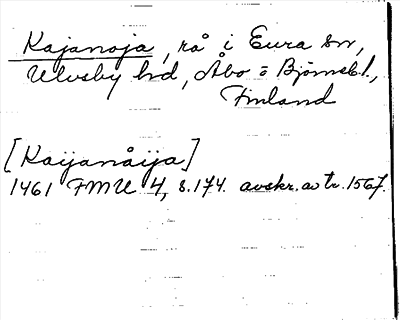 Kajanoja, rå i Eura sn,
Ulvsby hd, Åbo o Björneb. l.,
Finland
[Kaijanåija]
1461 FMU 4, s. 174. avskr. av tr. 1567.